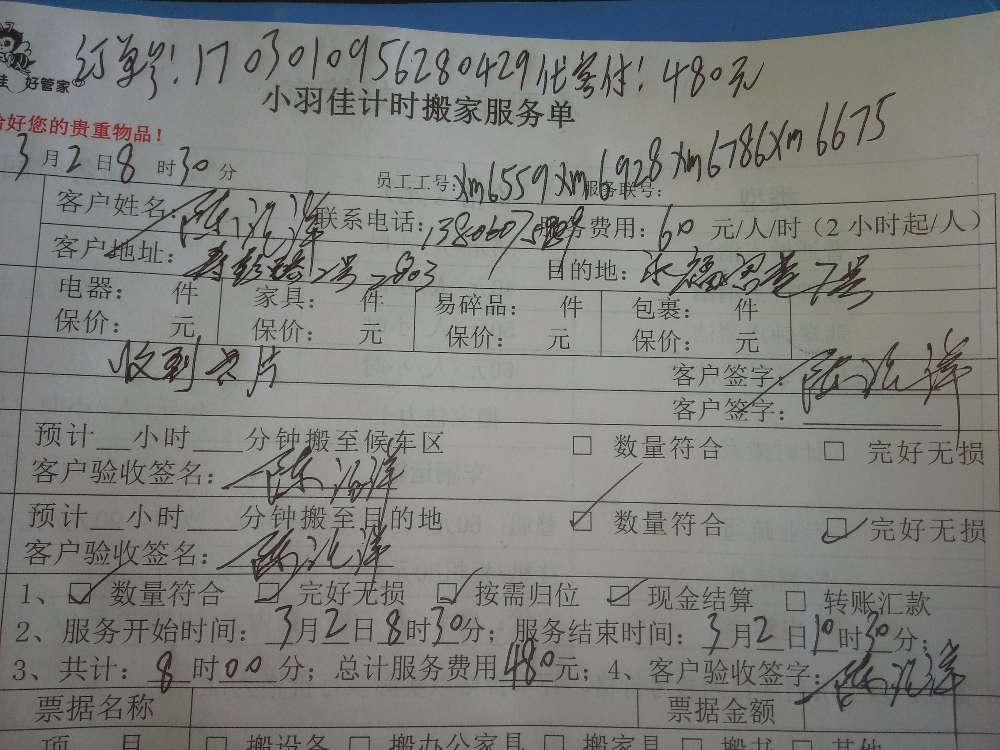 订单号:17030109562804291代客付:480元
佳 好管家
小羽佳计时搬家服务单
给好您的贵重物品!
3月2日8时30分
员工工号:xm6559xm6928xm6786xm6675 服务联号:
客户姓名: 联系电话: 服务费用:60元/人/时(2小时起/人)
客户地址: 2号2803 目的地: 7号
电器: 件 家具: 件 易碎品: 件 包裹: 件
保价: 元 保价: 元 保价: 元 保价: 元
收到 片 客户签字:
客户签字:
预计 小时 分钟搬至候车区 □ 数量符合 □ 完好无损
客户验收签名:
预计 小时 分钟搬至目的地 ☑ 数量符合 ☑ 完好无损
客户验收签名:
1、☑ 数量符合 ☑ 完好无损 ☑ 按需归位 ☑ 现金结算 □ 转账汇款
2、服务开始时间:3月2日8时30分;服务结束时间:3月2日10时30分;
3、共计:8时00分;总计服务费用480元;4、客户验收签字:
票据名称 票据金额
项 目 □ 搬设备 □ 搬办公家具 □ 搬家具 □ 搬书 □ 其他